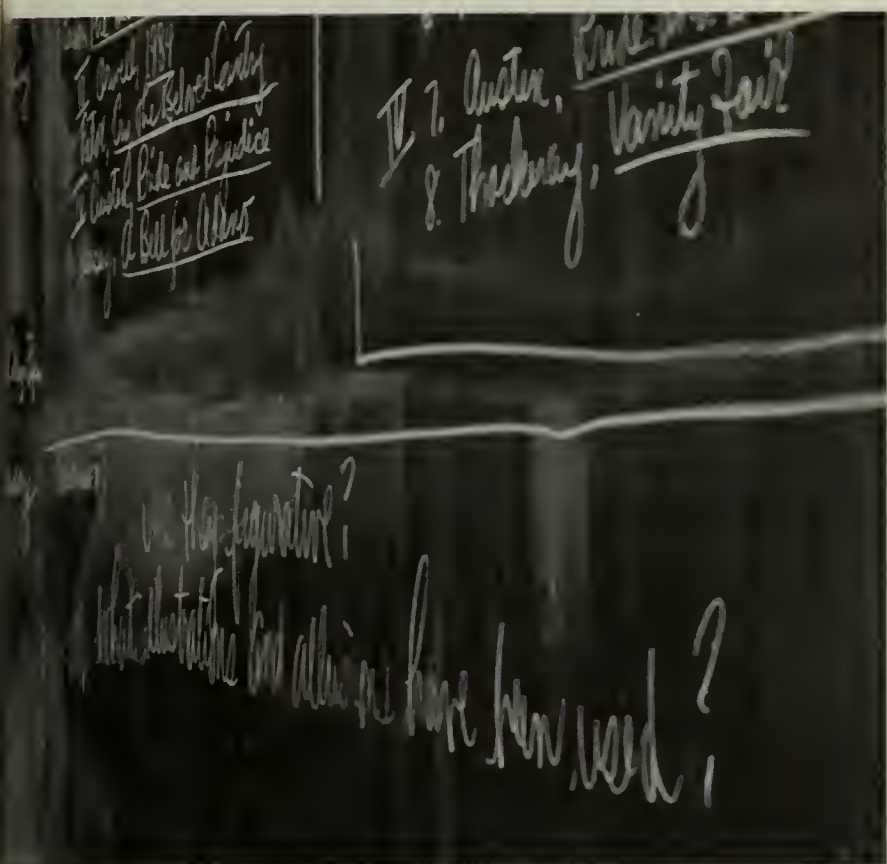 II Orwell, 1984
Paton, Cry, the Beloved Country
II Austen, Pride and Prejudice
A Bell for Adano
IV 7. Austen, Pride
8. Thackeray, Vanity Fair
they figurative?
What illustrations and allusions have been used?